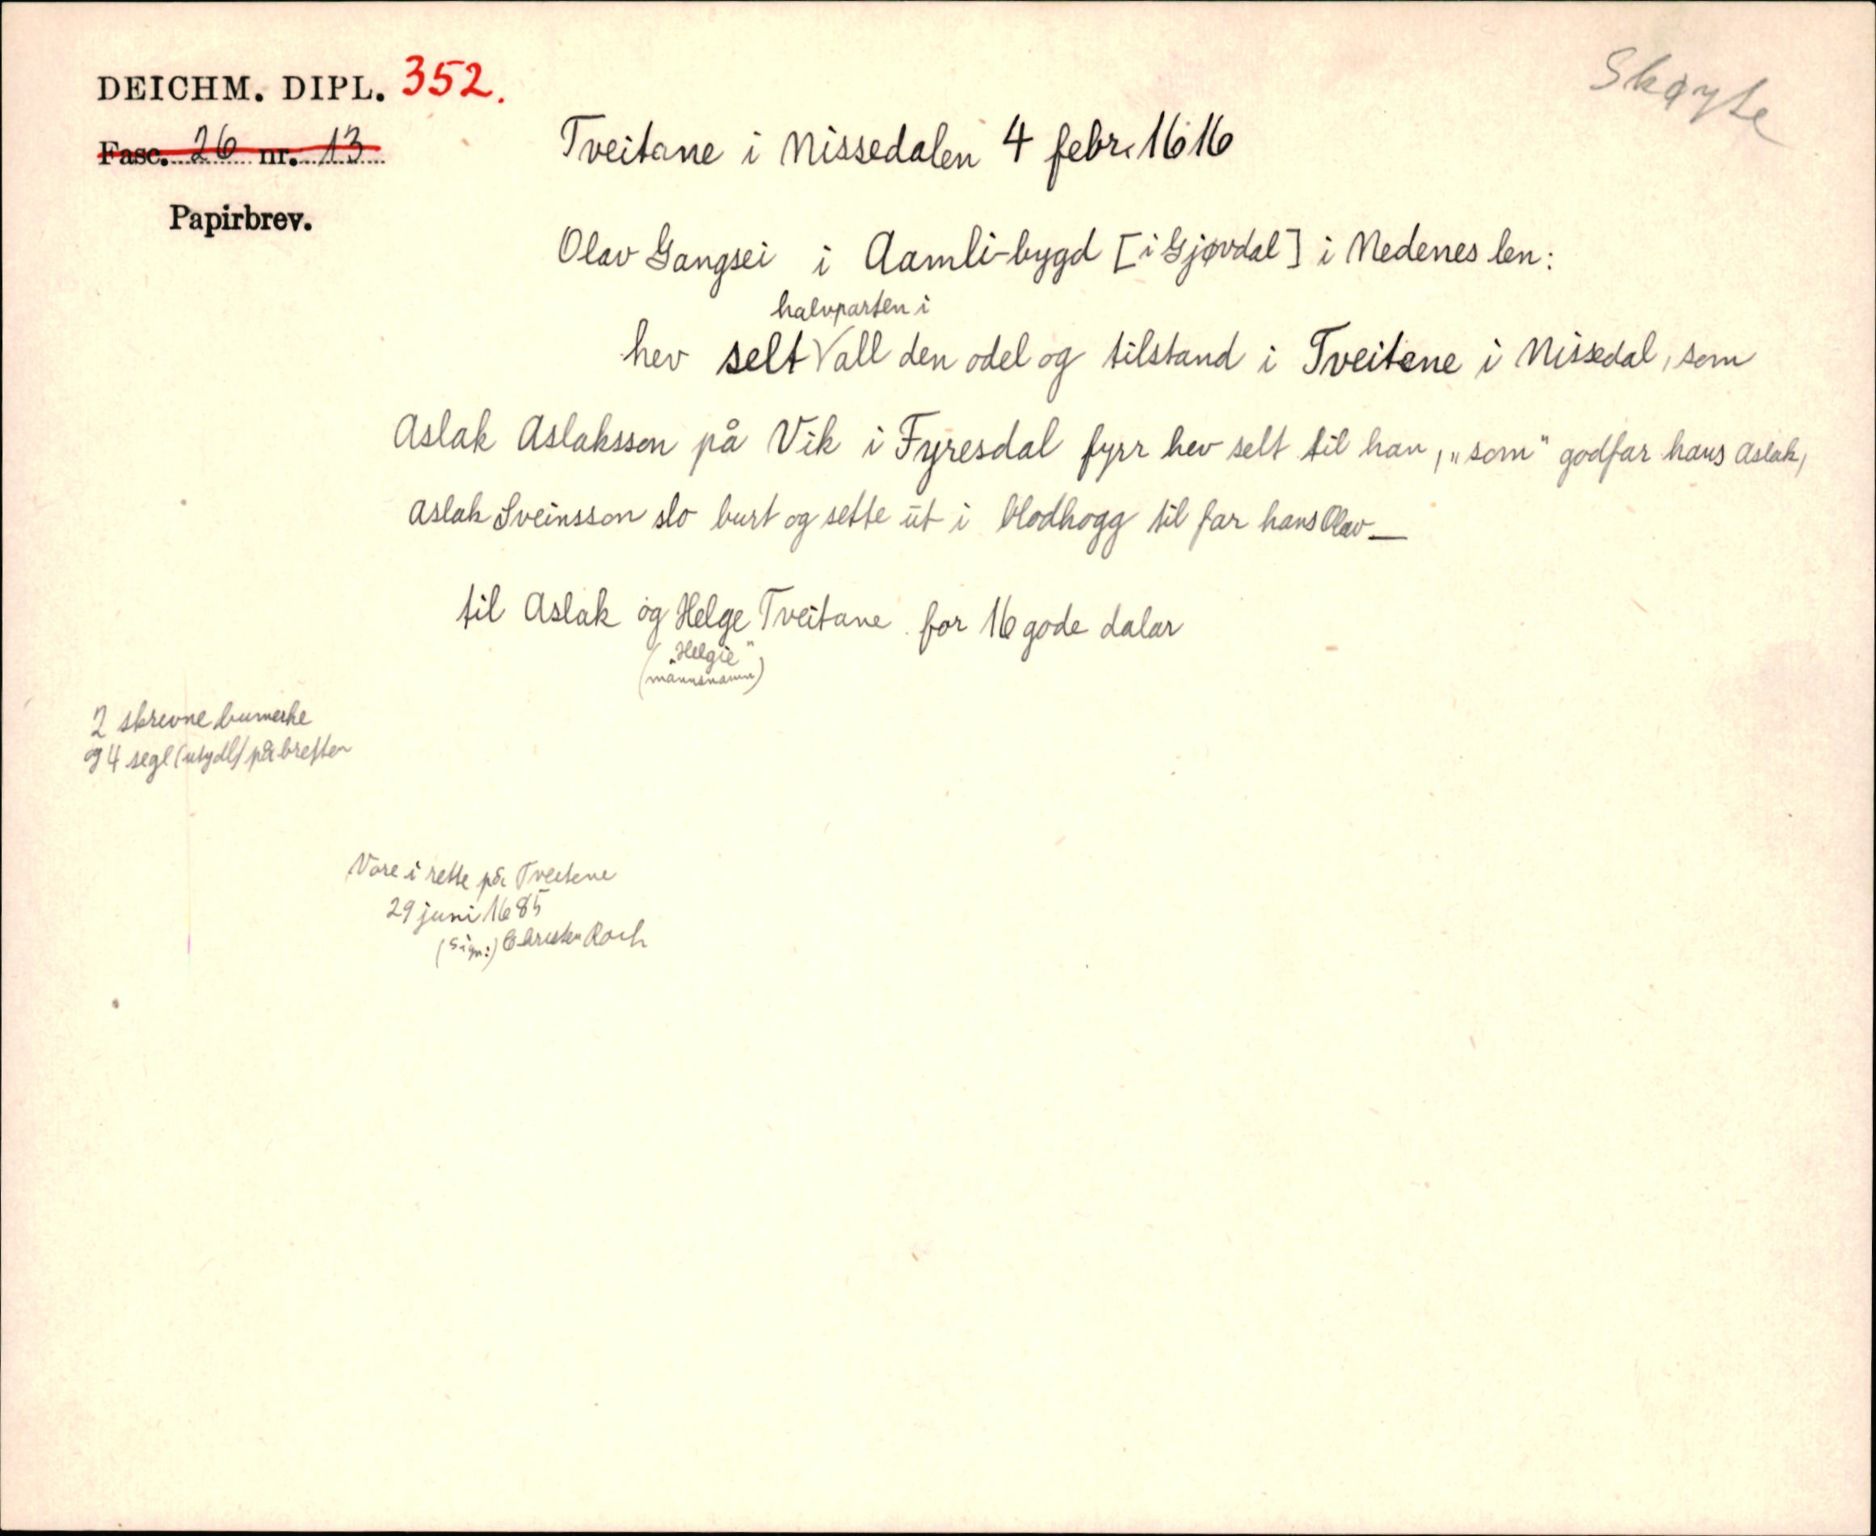 DEICHM. DIPL. 352.
Skøyte
Fasc. 26 nr. 13
Tveitane i Nissedalen 4 febr. 1616
Papirbrev.
Olav Gangsei i Aamli-bygd [i Gjøvdal] i Nedenes len:
halvparten i
hev selt √ all den odel og tilstand i Tveitene i Nissedal, som
Aslak Aslaksson på Vik i Fyresdal fyrr hev selt til han, „som" godfar hans Aslak,
Aslak Sveinsson slo burt og sette ut i blodhogg til far hans Olav —
til Aslak og Helge Tveitane for 16 gode dalar
„Helgie"
(mannsnamn)
2 skrevne bumerke
og 4 segl (utydl) på breften
Vore i rette på Tveitene
29 juni 1685
(sign:) Christen Roch